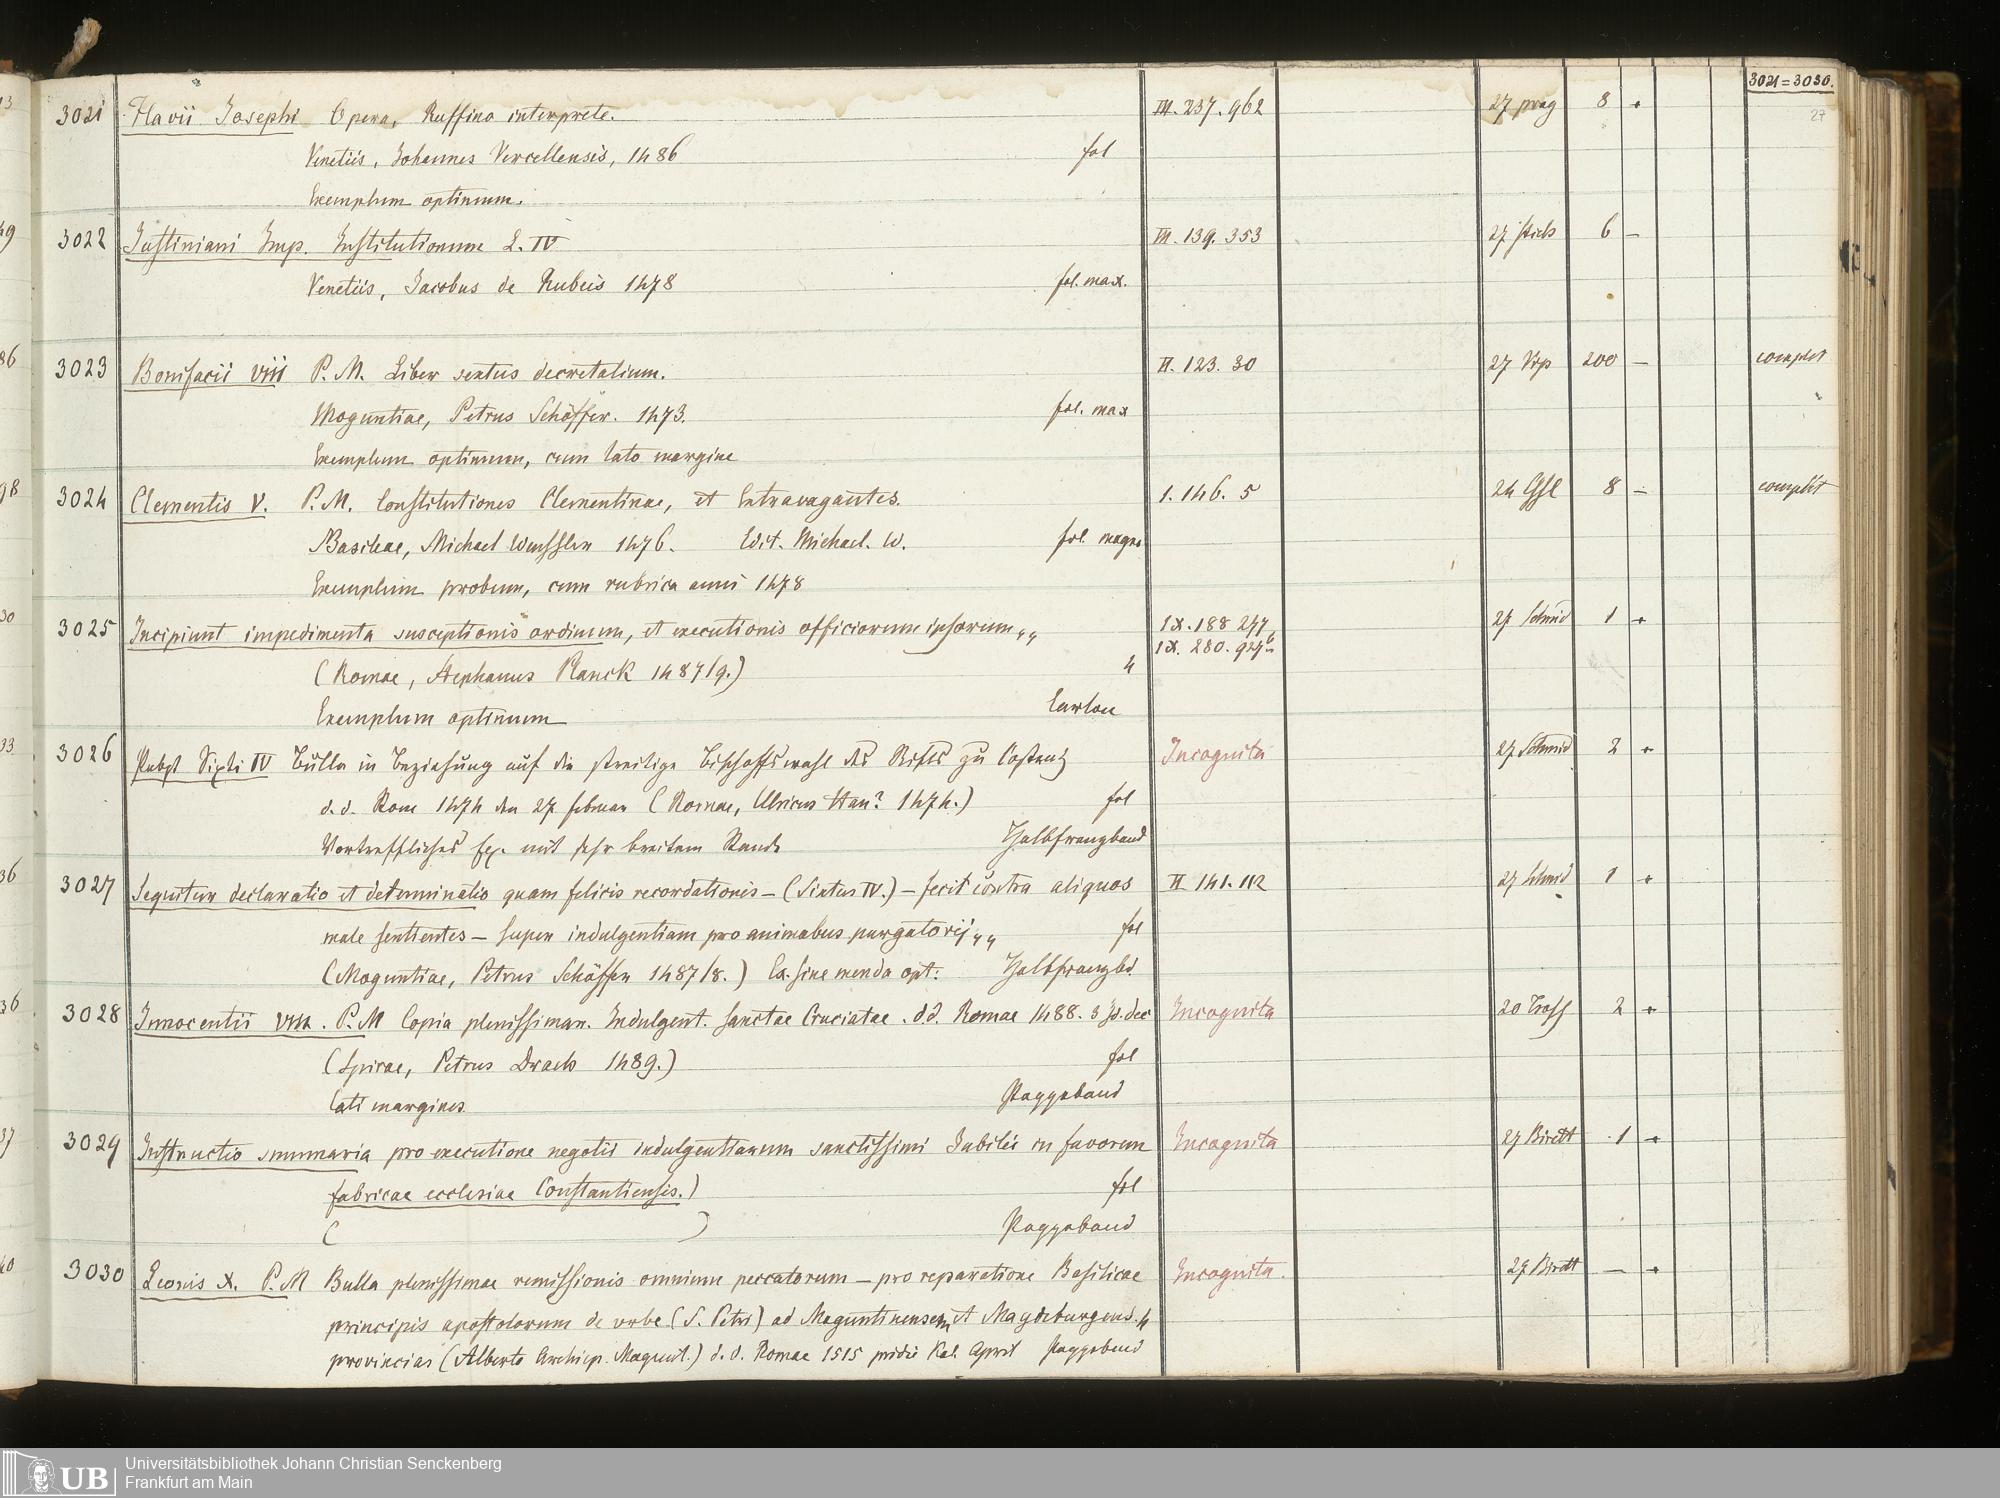 3021=3030.
27
3021 Flavii Josephi Opera, Ruffino interprete. III. 237. 962 27 prag 8 +
Venetiis, Johannes Vercellensis, 1486 fol
Exemplum optimum.
3022 Justiniani Imp. Institutionum L. IV III. 139. 353 27 6 –
Venetiis, Jacobus de Rubeis 1478 fol. max.
3023 Bonifacii VIII P. M. Liber sextus decretalium. II. 123. 30 27 200 – complet
Moguntiae, Petrus Schöffer. 1473. fol. max
Exemplum optimum, cum lato margine
3024 Clementis V. P. M. Constitutiones Clementinae, et Extravagantes. 1. 146. 5 24 8 – complet
Basileae, Michael Wenssler 1476. Edit. Michael. W. fol. magno
Exemplum probum, cum rubrica anni 1478
3025 Incipiunt impedimenta susceptionis ordinum, et executionis officiorum ipsorum,, IX. 188 247 27 Schmid 1 +
IX. 280. 924
(Romae, Stephanus Planck 1487/9.) 4
Exemplum optimum Carton
3026 Pabst Sixti IV Bulla in Beziehung auf die streitige Bischoffswahl des Stifts zu Costantz Incognita 27 Schmid 2 +
d. d. Rom 1474 den 27 februar (Romae, Ulricus Han? 1474.) fol
Vortreffliches Ex. mit sehr breitem Rande Halbfranzband
3027 Sequitur declaratio et determinatio quam felicis recordationis – (Sixtus IV.) – fecit contra aliquos II 141. 112 27 Schmid 1 +
male sentientes – super indulgentiam pro animabus purgatorij,, fol
(Moguntiae, Petrus Schöffer 1487/8.) Ex. sine menda opt. Halbfranzbd
3028 Innocentii VIII. P. M Copia plenissimar. Indulgent. sanctae Cruciatae. d. d. Romae 1488. 3 Id. dec Incognita 20 2 +
(Spirae, Petrus Drach 1489.) fol
Lati margines Pappeband
3029 Instructio summaria pro executione negotii indulgentiarum sanctissimi Jubilei in favorem Incognita 27 Birett 1 +
fabricae ecclesiae Constantiensis.) fol
( ) Pappeband
3030 Leonis X. P. M Bulla plenissimae remissionis omnium peccatorum – pro reparatione Basilicae Incognita. 27 Birett — +
principis apostolorum de urbe (S. Petri) ad Maguntinensem et Magdeburgens. 4
provincias (Alberto Archiep. Magunt.) d. d. Romae 1515 pridie Kal. April Pappeband
UB Universitätsbibliothek Johann Christian Senckenberg
Frankfurt am Main